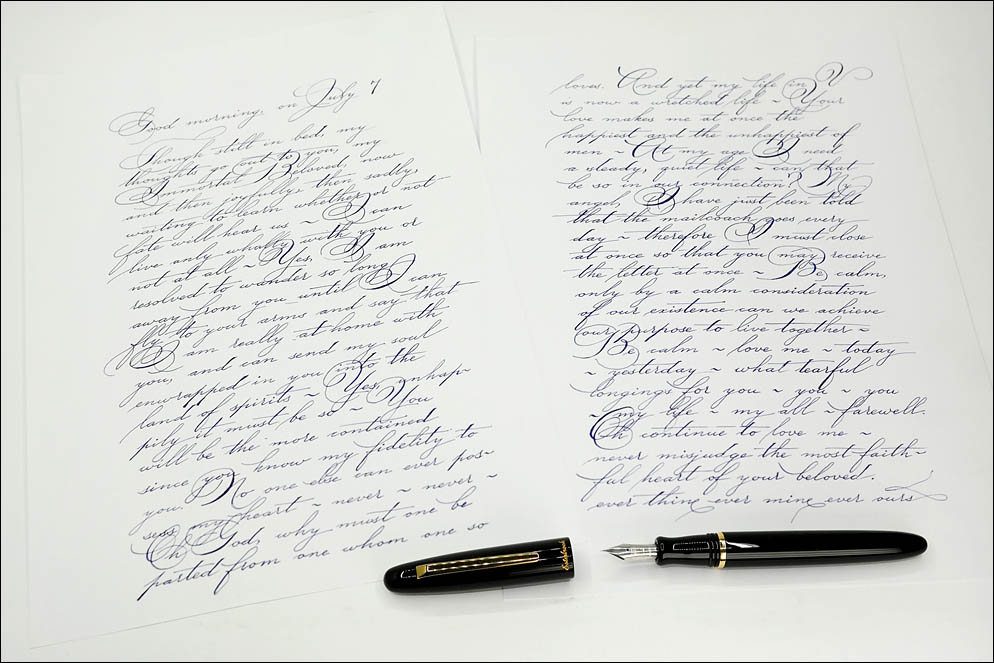 Good morning, on July 7
Though still in bed, my
thoughts go out to you, my
Immortal Beloved, now
and then joyfully, then sadly,
waiting to learn whether or not
fate will hear us ~ I can
live only wholly with you or
not at all ~ Yes, I am
resolved to wander so long
away from you until I can
fly to your arms and say that
I am really at home with
you, and can send my soul
enwrapped in you into the
land of spirits ~ Yes, unhap-
pily it must be so ~ You
will be the more contained
since you know my fidelity to
you. No one else can ever pos-
sess my heart ~ never ~ never ~
Oh God, why must one be
parted from one whom one so
loves. And yet my life in V
is now a wretched life ~ Your
love makes me at once the
happiest and the unhappiest of
men ~ At my age I need
a steady, quiet life ~ can that
be so in our connection? My
angel, I have just been told
that the mailcoach goes every
day ~ therefore I must close
at once so that you may receive
the letter at once ~ Be calm,
only by a calm consideration
of our existence can we achieve
our purpose to live together ~
Be calm ~ love me ~ today
~ yesterday ~ what tearful
longings for you ~ you ~ you
~ my life ~ my all ~ farewell.
Oh continue to love me ~
never misjudge the most faith-
ful heart of your beloved.
ever thine ever mine ever ours
Esterbrook